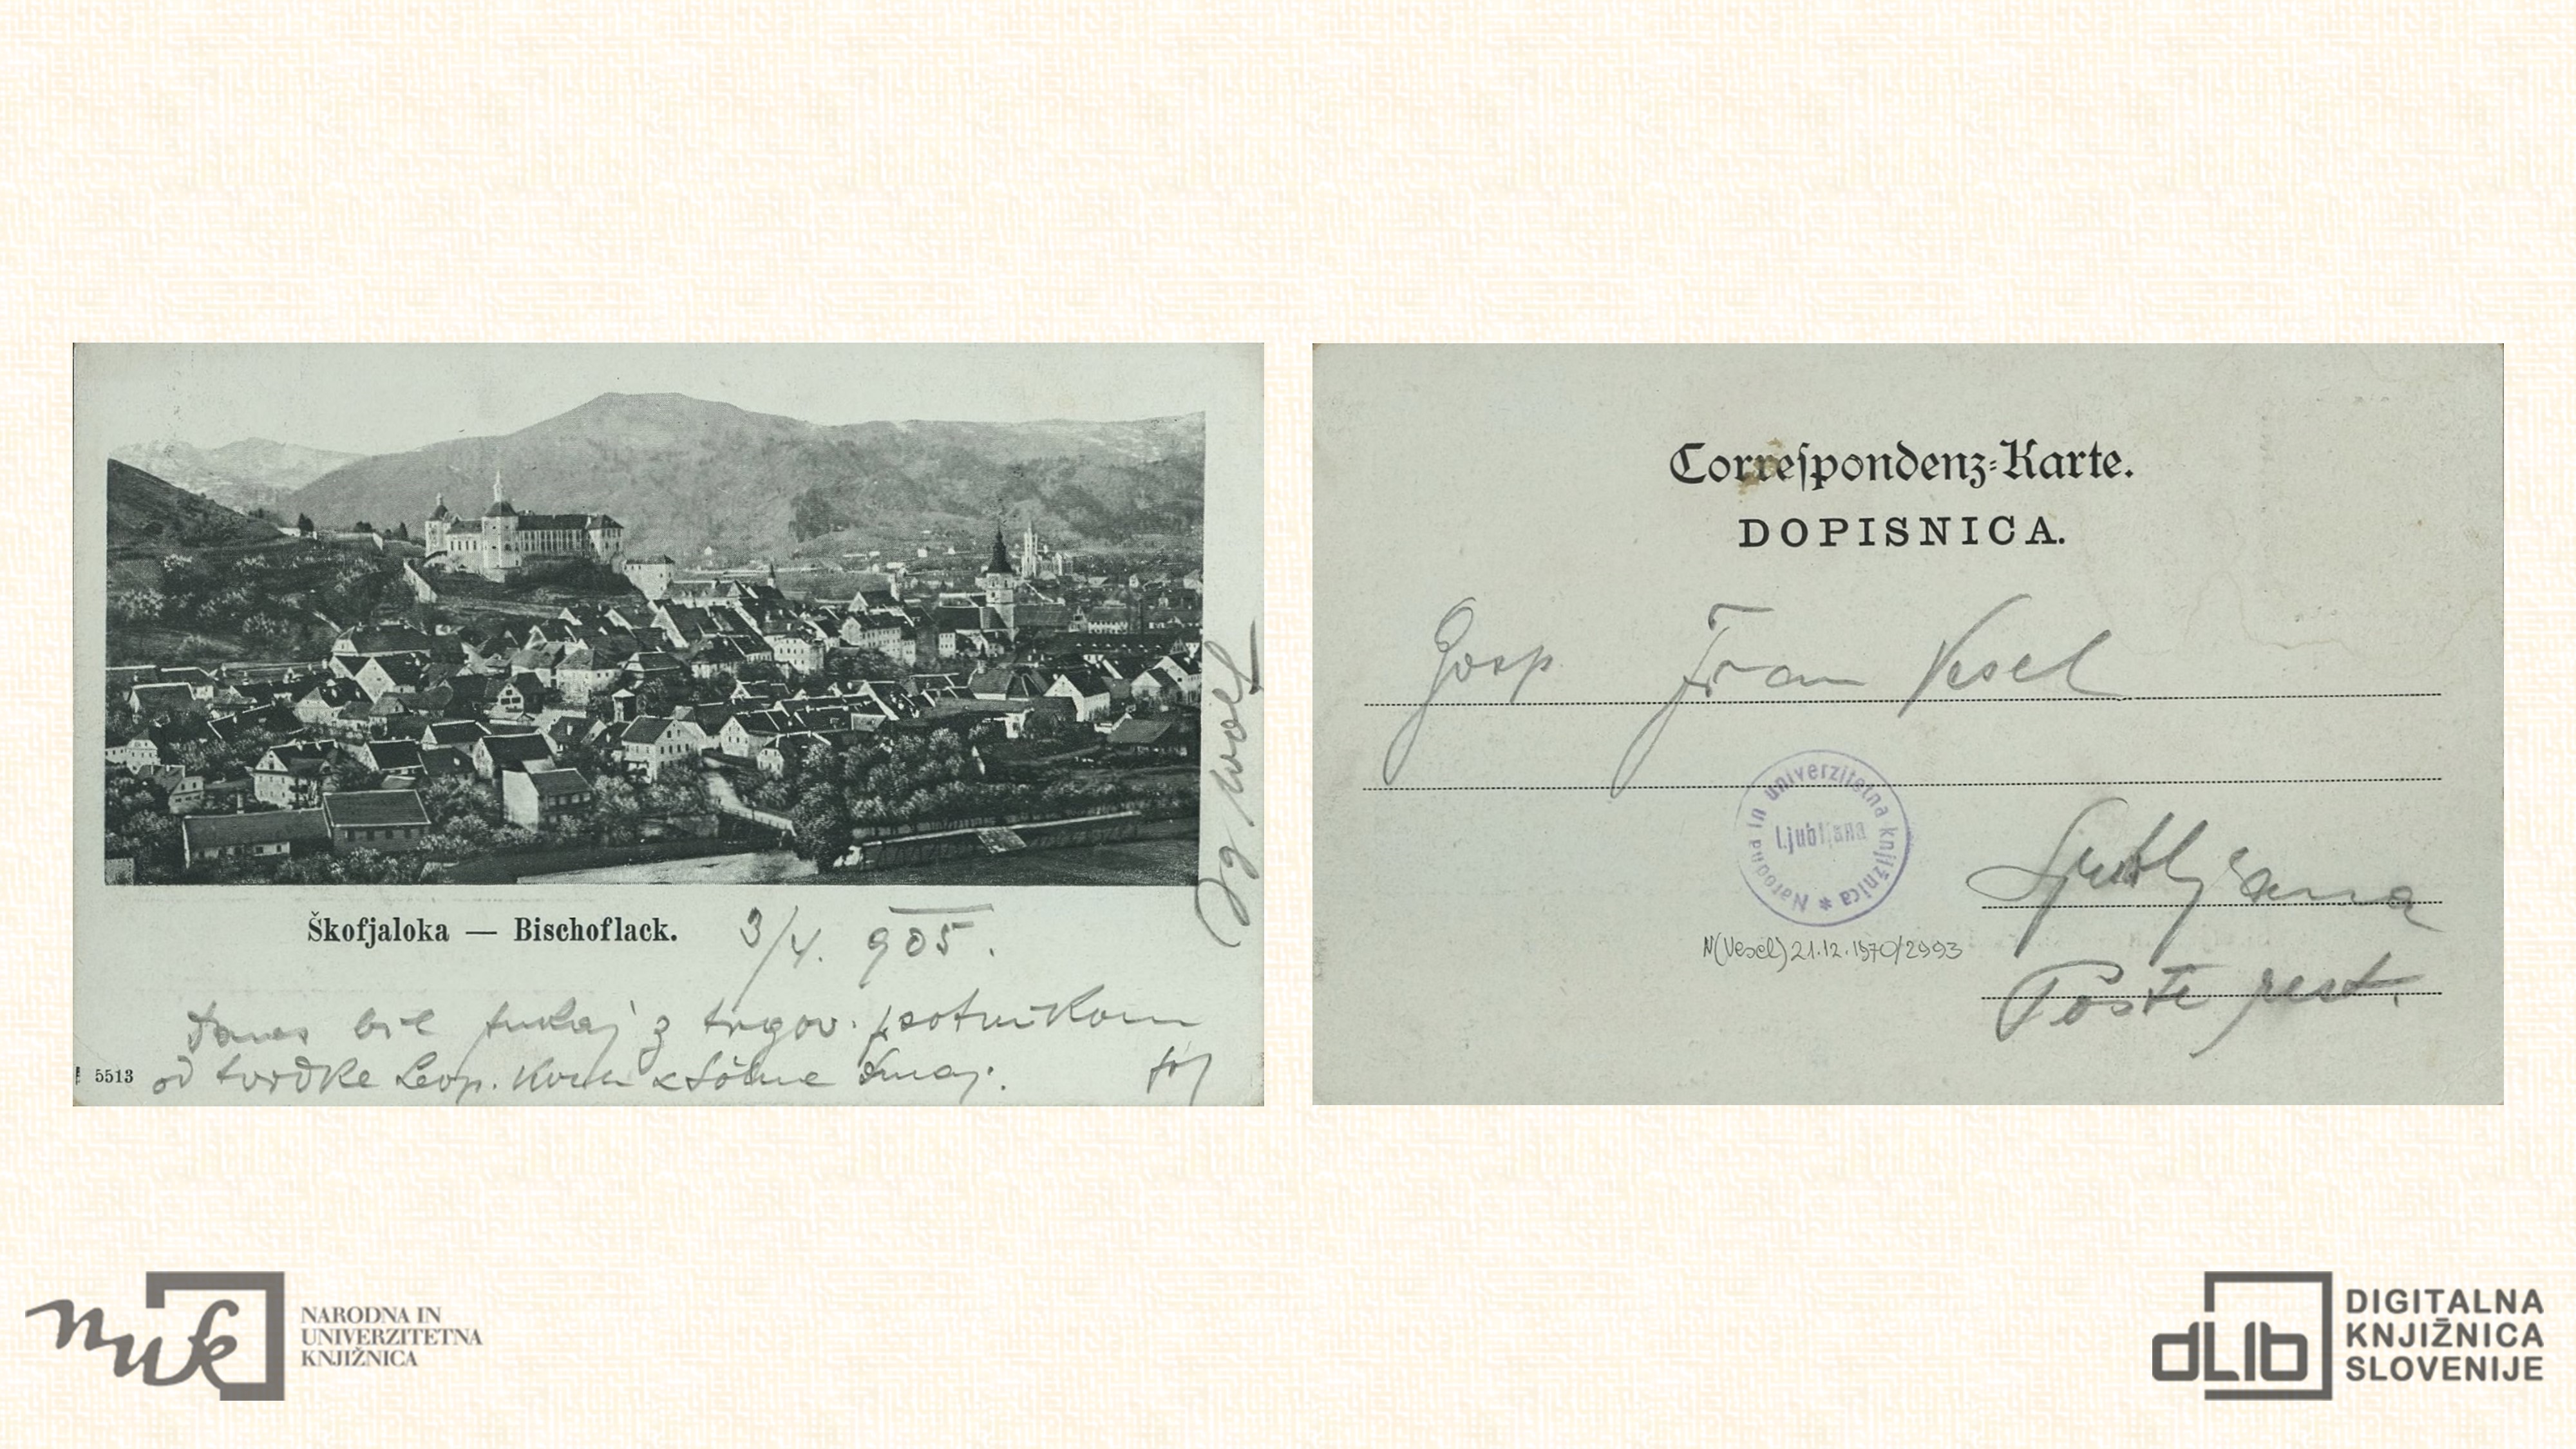 Škofjaloka — Bischoflack.
3/4. 905.
Danes bil tukaj z trgov. potnikom
od tvrdke Leop.
5513
Correſpondenz-Karte.
DOPISNICA.
Gosp Fran Vesel
Narodna in univerzitetna knjižnica *
Ljubljana
Ljubljana
N(Vesel) 21.12.1970/2993
Poste rest.
nuk
NARODNA IN
UNIVERZITETNA
KNJIŽNICA
dLIb
DIGITALNA
KNJIŽNICA
SLOVENIJE